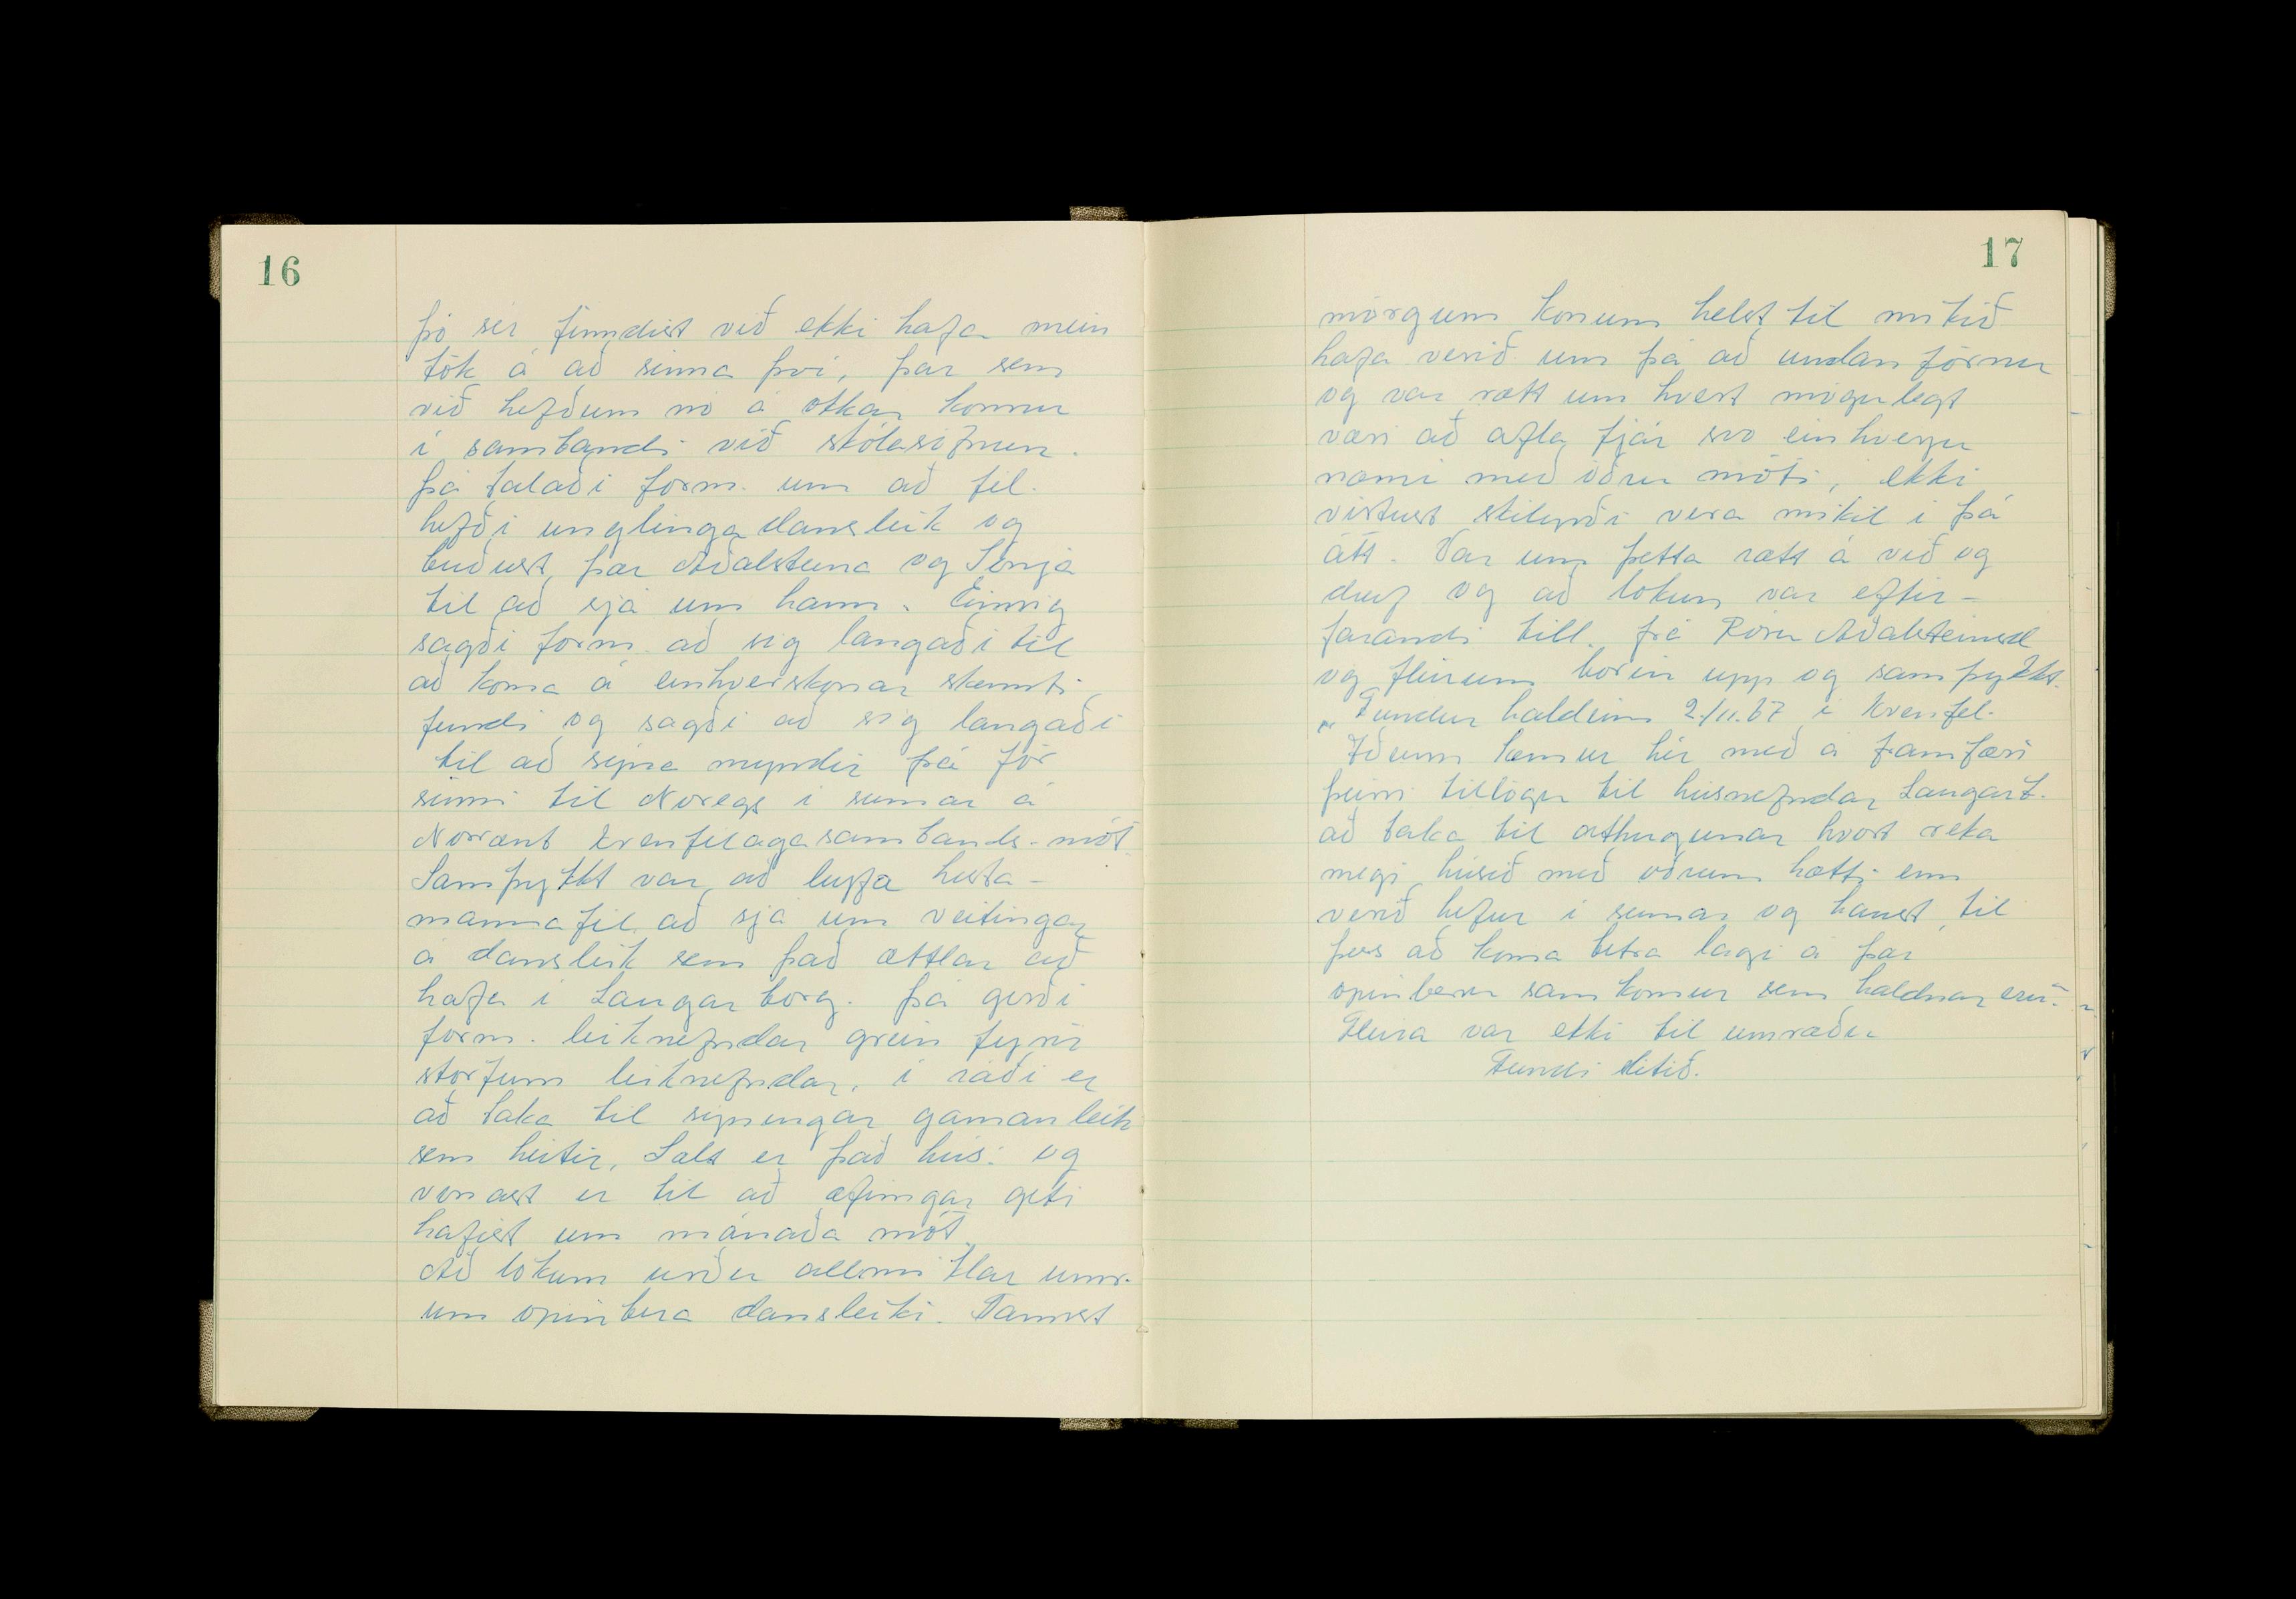 16
þó sér finndist við ekki hafa nein
tök á að sinna því, þar sem
við hefðum nó á okkar könnu
í sambandi við skólasöfnun.
Þá talaði form. um að fél.
hefði unglingadansleik og
buðust þær Aðalsteina og Sonja
til að sjá um hann. Einnig
sagði form. að sig langaði til
að koma á einhverskonar skemti
fundi og sagði að sig langaði
til að sýna myndir frá för
sinni til Noregs í sumar á
Norrænt kvenfélagasambands-mót.
Samþykkt var að leyfa hesta-
mannafél. að sjá um veitingar
á dansleik sem það ættlar að
hafa í Laugarborg. Þá gerði
form. leiknefndar grein fyrir
störfum leiknefndar, í ráði er
að taka til sýningar gamanleik
sem heitir, Salt er það hús: og
vonast er til að æfingar geti
hafist um mánaða mót.
Að lokum urðu allmiklar umr.
um opinbera dansleiki. Fannst
17
mörgum konum helst til mikið
hafa verið um þá að undan förnu
og var rætt um hvert mögulegt
væri að afla fjár svo einhverju
næmi með öðru móti, ekki
virtust skilyrði vera mikil í þá
átt. Var um þetta rætt á við og
dreif og að lokum var eftir-
farandi till. frá Rósu Aðalsteinsd
og fleirum borin upp og samþykkt.
„Fundur haldinn 2/11.67 í kvenfél.
Iðunn kemur hér með á framfæri
þeirri tillögu til húsnefndar Laugarb.
að taka til athugunar hvort reka
megi húsið með öðrum hætti enn
verið hefur í sumar og haust, til
þess að koma betra lagi á þær
opinberu samkomur sem haldnar eru.“
Fleira var ekki til umræðu
Fundi slitið.